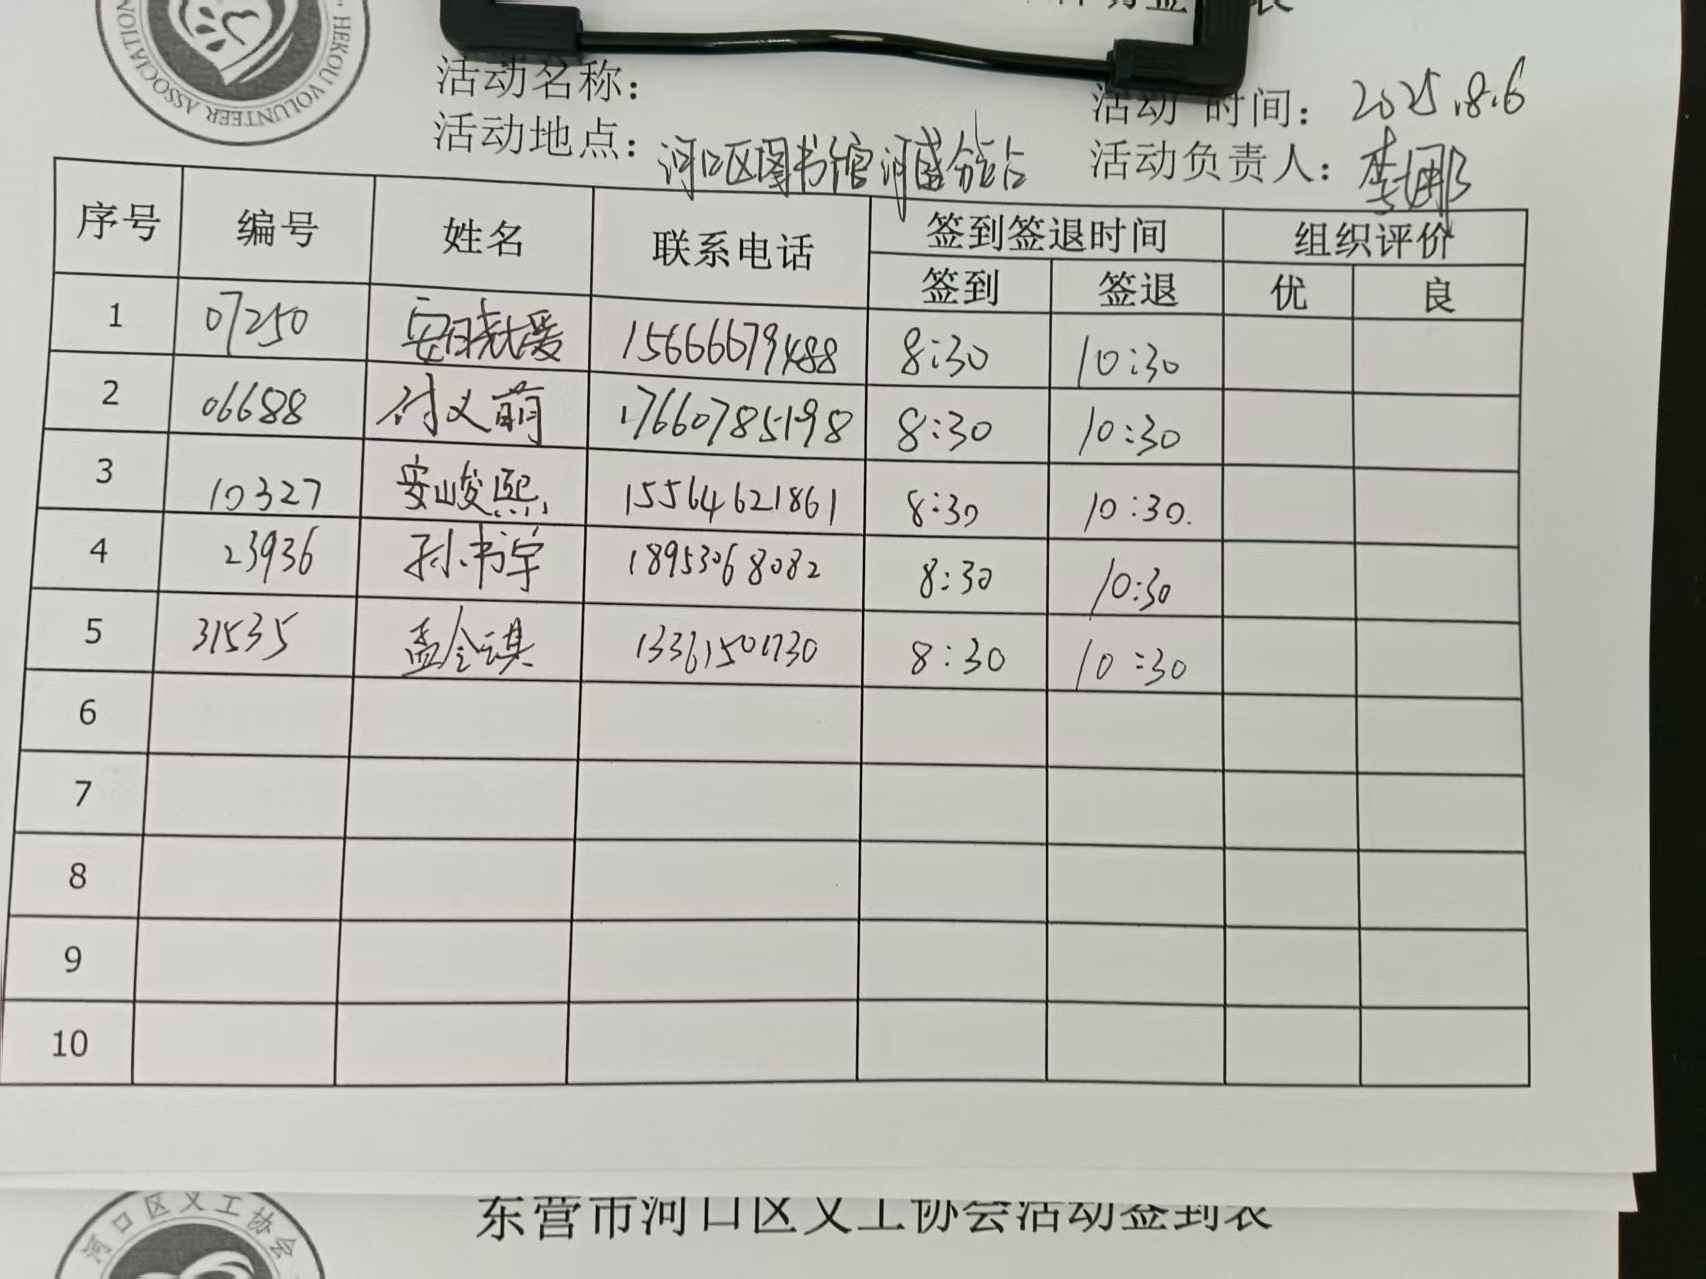 HEKOU VOLUNTEER ASSOCIATION
活动名称：
活动 时间： 2025.8.6
活动地点： 河口区图书馆河盛分站
活动负责人： 李娜
序号 编号 姓名 联系电话 签到签退时间 组织评价
签到 签退 优 良
1 07250 安晓媛 15666679488 8:30 10:30
2 06688 付义萌 17660785198 8:30 10:30
3 10327 安峻熙 15564621861 8:30 10:30.
4 23936 孙书宇 18953068082 8:30 10:30
5 31535 孟令琪 13361501730 8:30 10:30
6
7
8
9
10
东营市河口区义工协会活动签到表
河口区义工协会